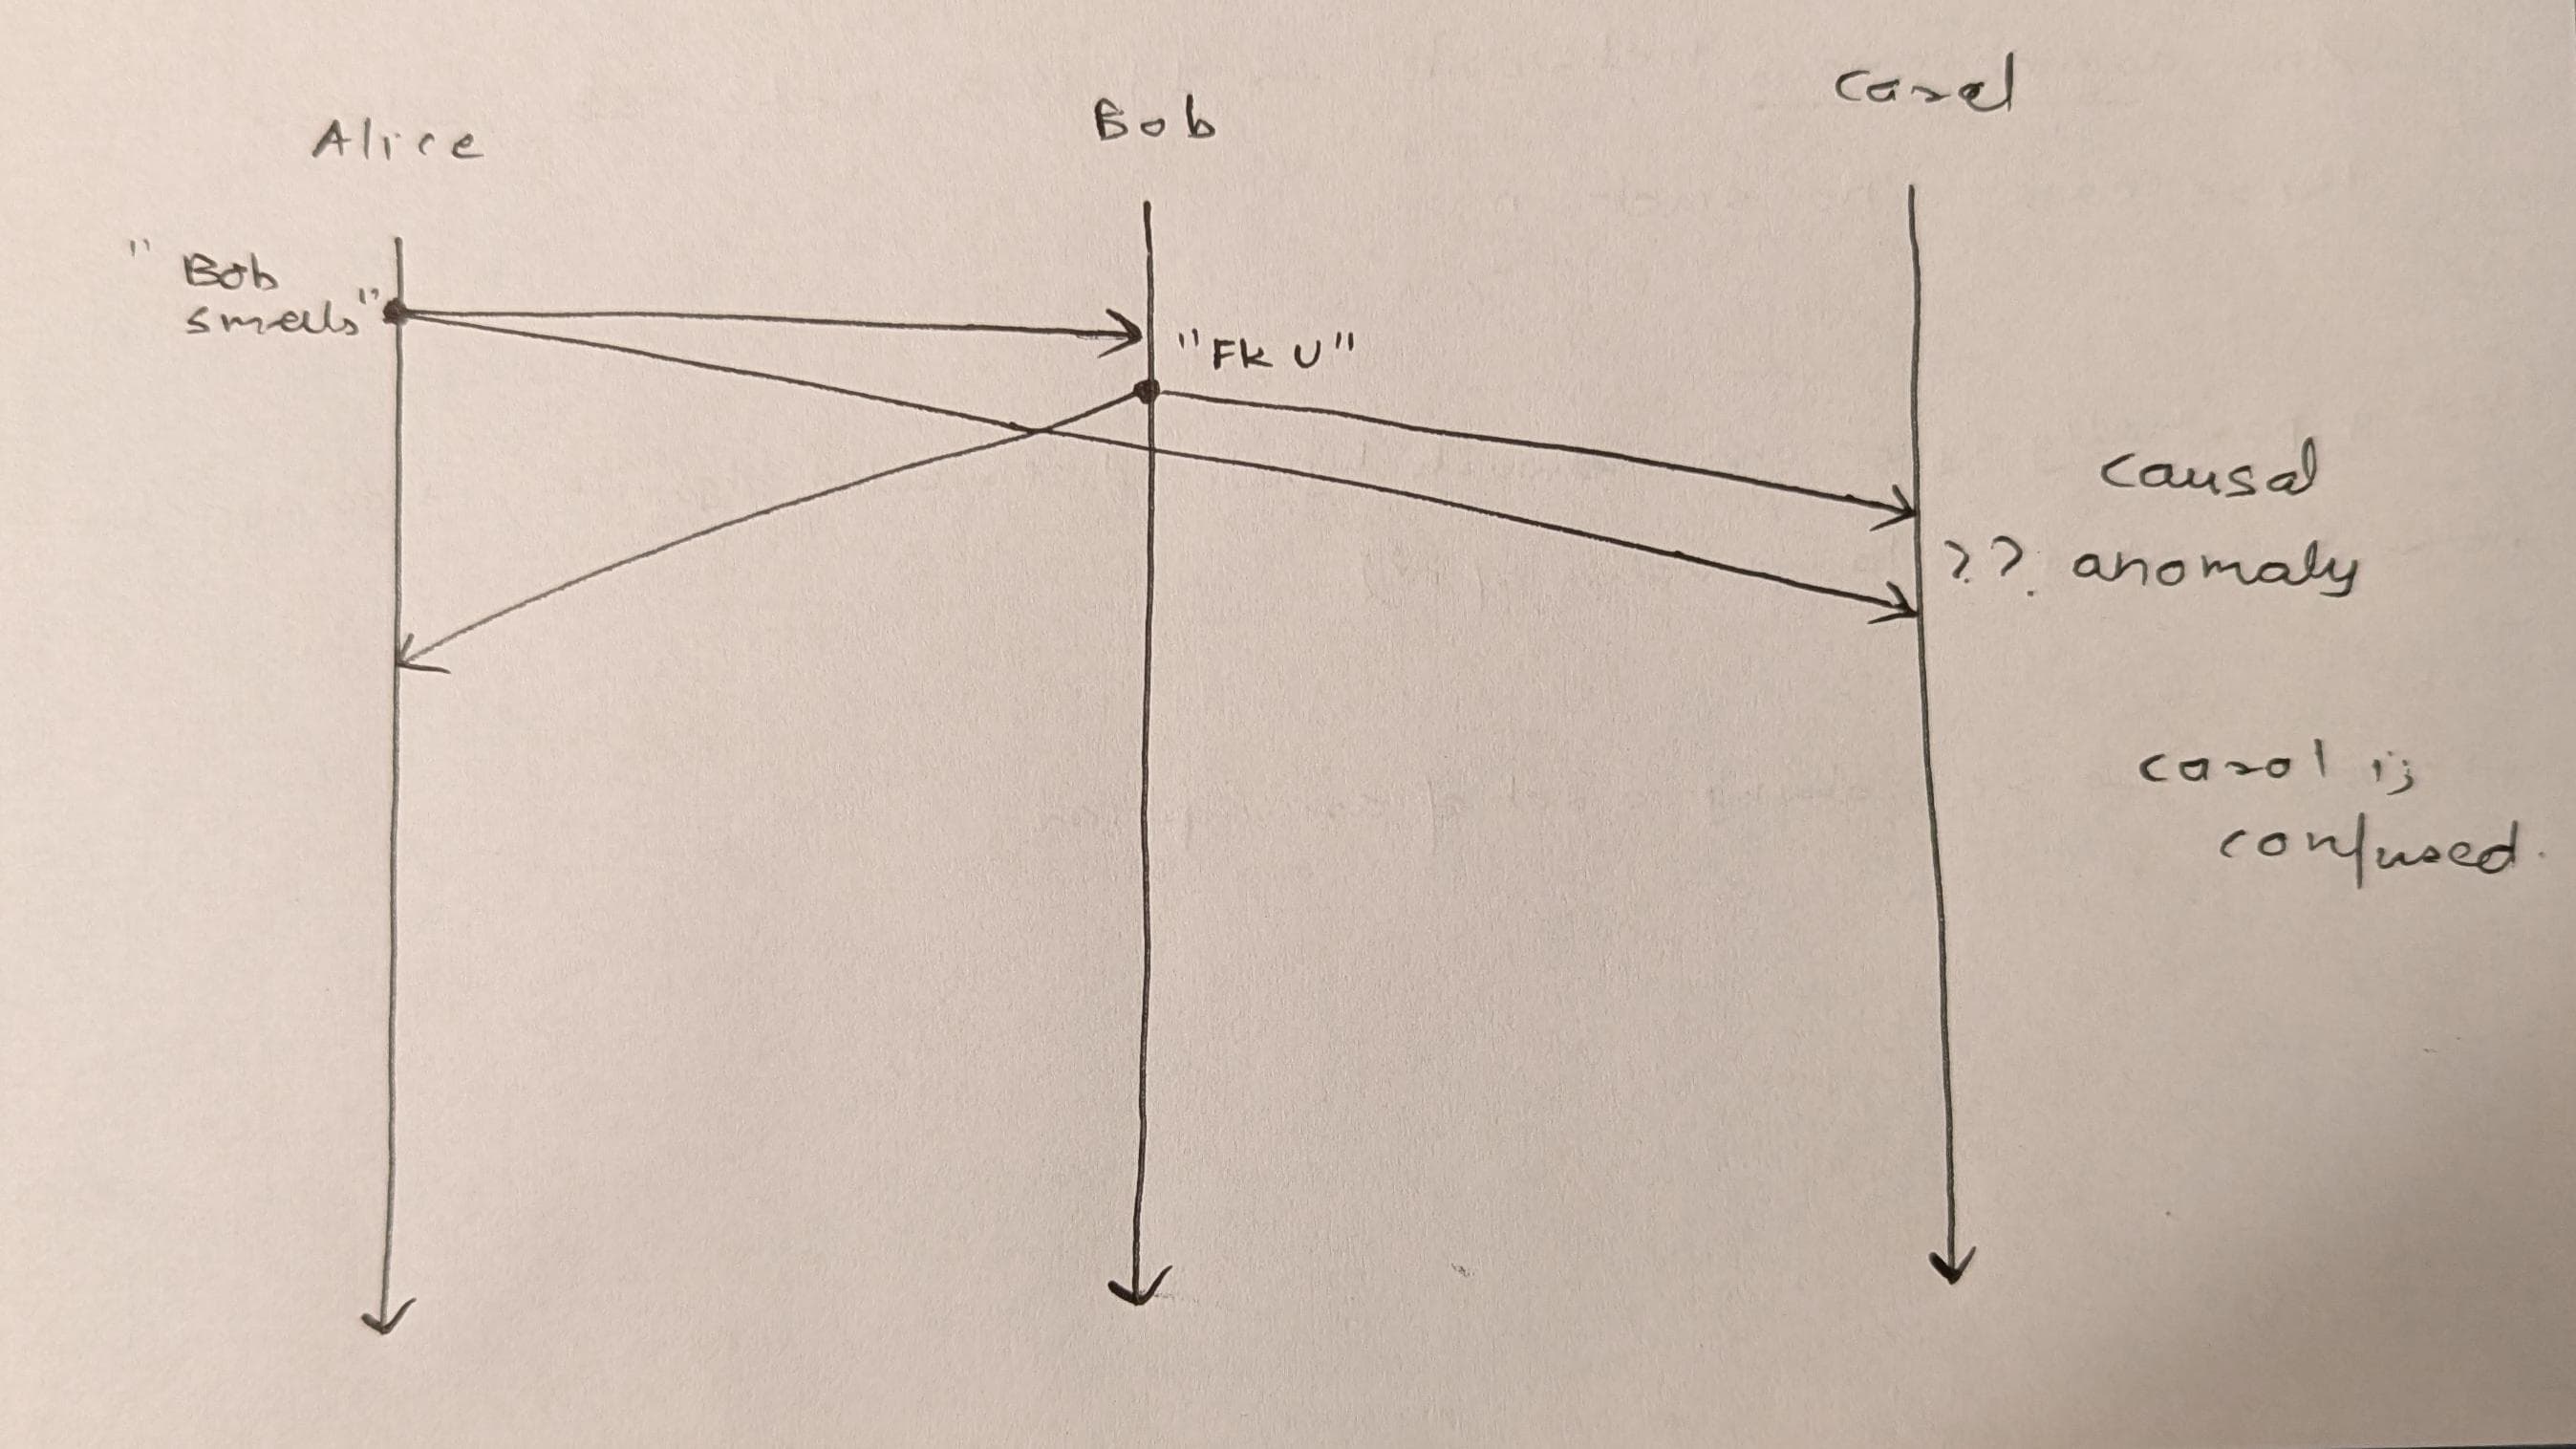 Alice
Bob
Carol
" Bob
smells"
"FK U"
causal
?? anomaly
carol is
confused.